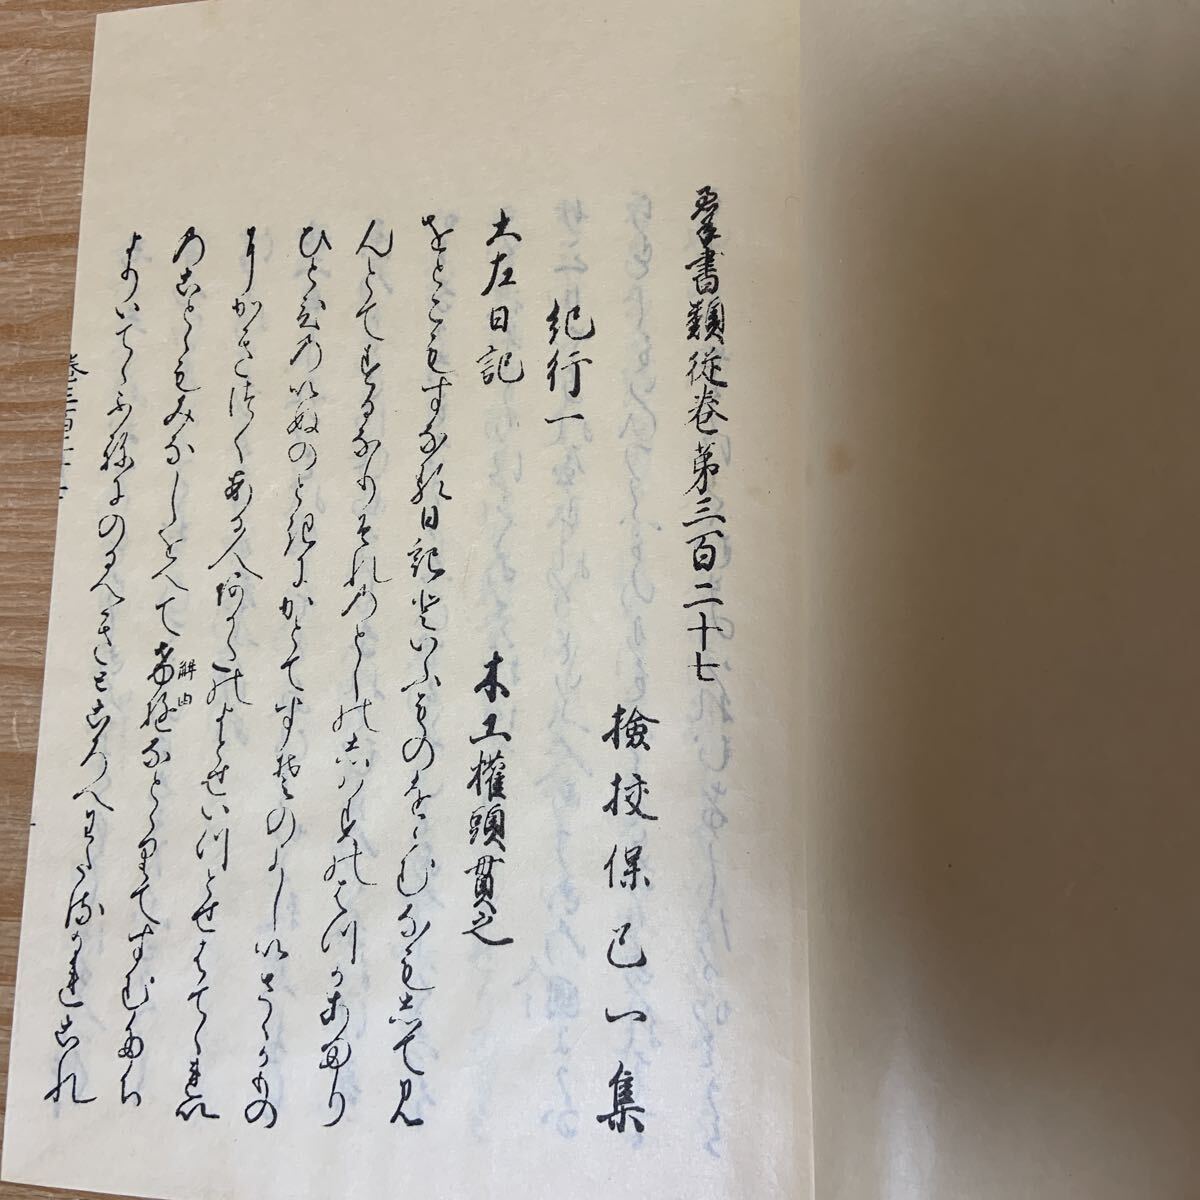 群書類従巻第三百二十七
検校保己一集
紀行一
土左日記
木工権頭貫之
をとこもすなる日記といふものををむなもしてみ
んとてするなりそれのとしのしはすのはつかあまり
ひとひのいぬのときにかとてすそのよしいさゝかもの
にかきつくある人あかたのよとせいつとせはてゝれい
のことゝもみなしをへて
解由
なとゝりてすむたち
よりいてゝふねにのるへきところへわたるかれこれ
巻三百二十七